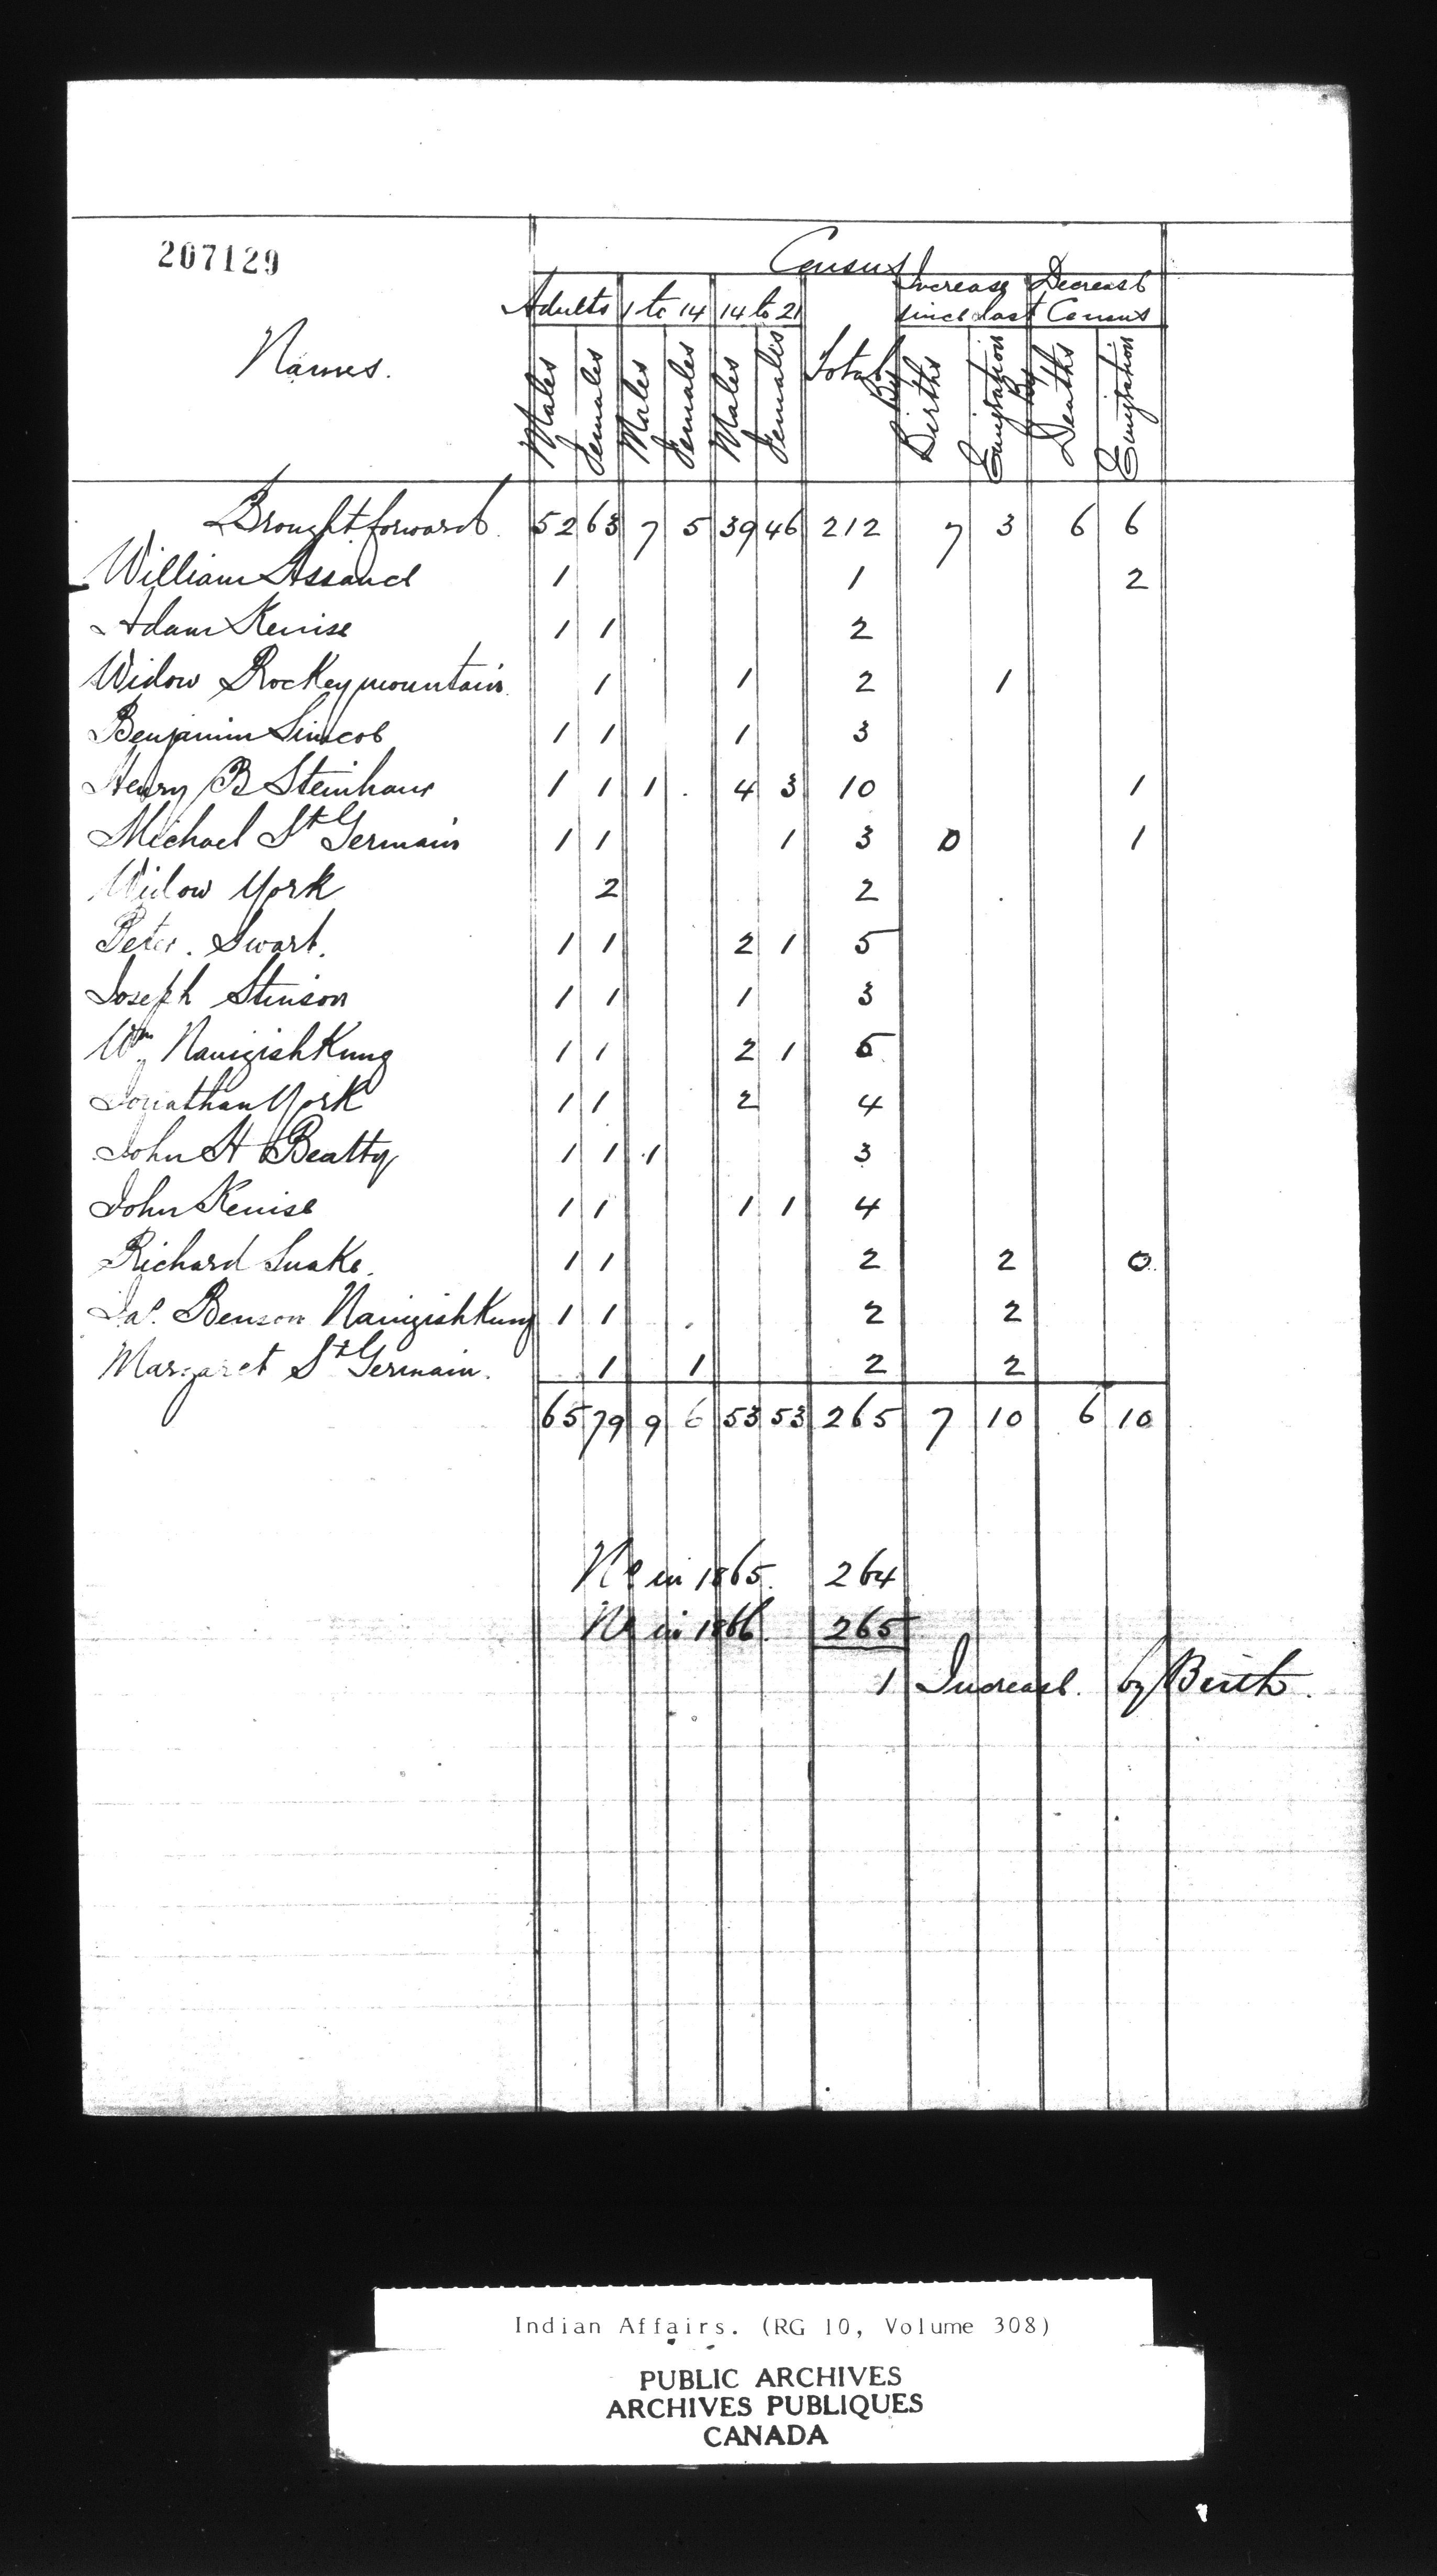 207129
Census
Names.
Adults 1 to 14 14 to 21 Total Increase since last Decrease Census
Males Females Males Females Males Females By Births Emigration By Deaths Emigration
Brought forward. 52 63 7 5 39 46 212 7 3 6 6
William Assance 1 1 2
Adam Kenise 1 1 2
Widow Rockeymountain. 1 1 2 1
Benjamin Simcoe 1 1 1 3
Henry B Steinhaur 1 1 1 . 4 3 10 1
Michael St Germain 1 1 1 3 0 1
Widow York 2 2
Peter. Swart. 1 1 2 1 5
Joseph Stinson 1 1 1 3
Wm Nanigishkung 1 1 2 1 5
Jonathan York 1 1 2 4
John H Beatty 1 1 1 3
John Kenise 1 1 1 1 4
Richard Snake. 1 1 2 2 0
Jas. Benson Nanigishkung 1 1 2 2
Margaret St Germain. 1 1 2 2
65 79 9 6 53 53 265 7 10 6 10
No in 1865. 264
No in 1866. 265
1 Increase. by Birth.
Indian Affairs. (RG 10, Volume 308)
PUBLIC ARCHIVES
ARCHIVES PUBLIQUES
CANADA